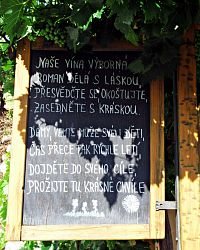 NAŠE VÍNA VÝBORNÁ
ROMAN DĚLÁ S LÁSKOU,
PŘESVĚDČTE SE, OKOŠTUJTE,
ZASEDNĚTE S KRÁSKOU.
DÁMY, VEMTE MUŽE SVÉ I DĚTI,
ČAS PŘECE TAK RYCHLE LETÍ,
DOJDĚTE DO SVÉHO CÍLE,
PROŽIJTE TU KRÁSNÉ CHVÍLE